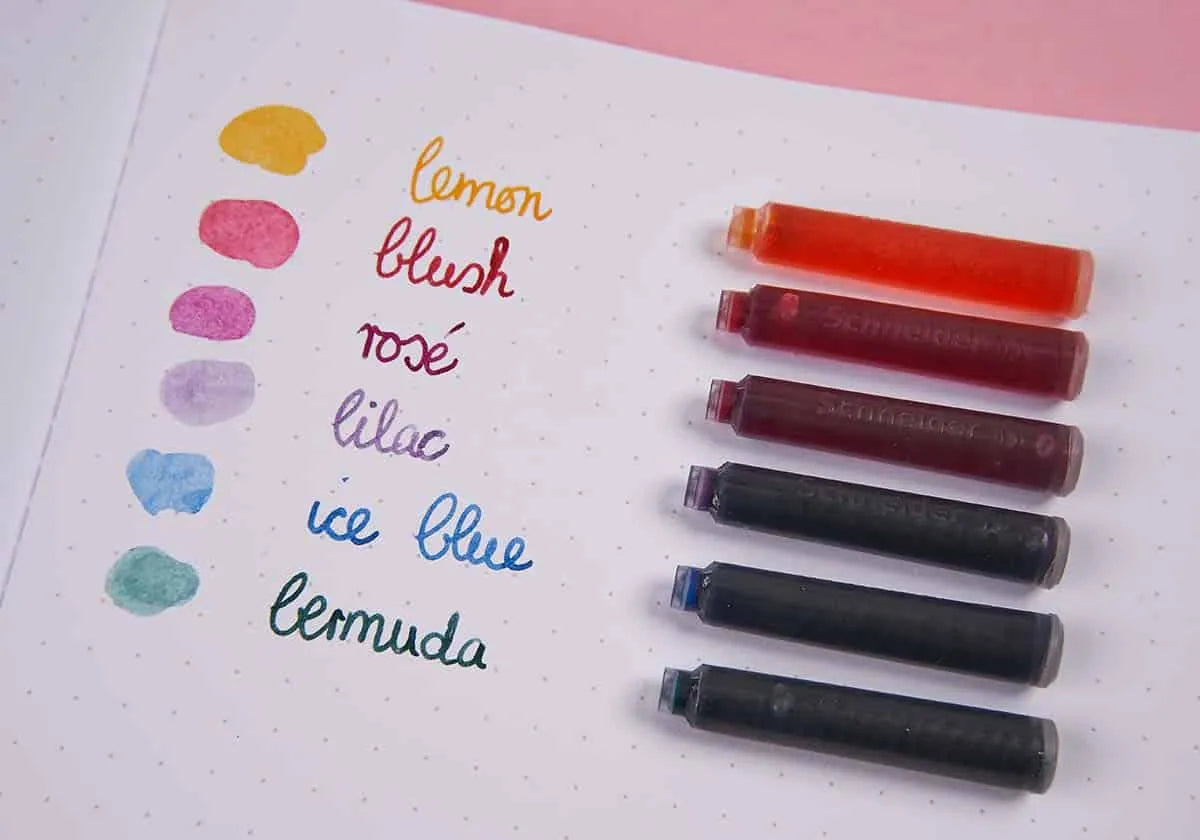 lemon
blush
rosé
lilac
ice blue
bermuda
Schneider
Schneider
Schneider